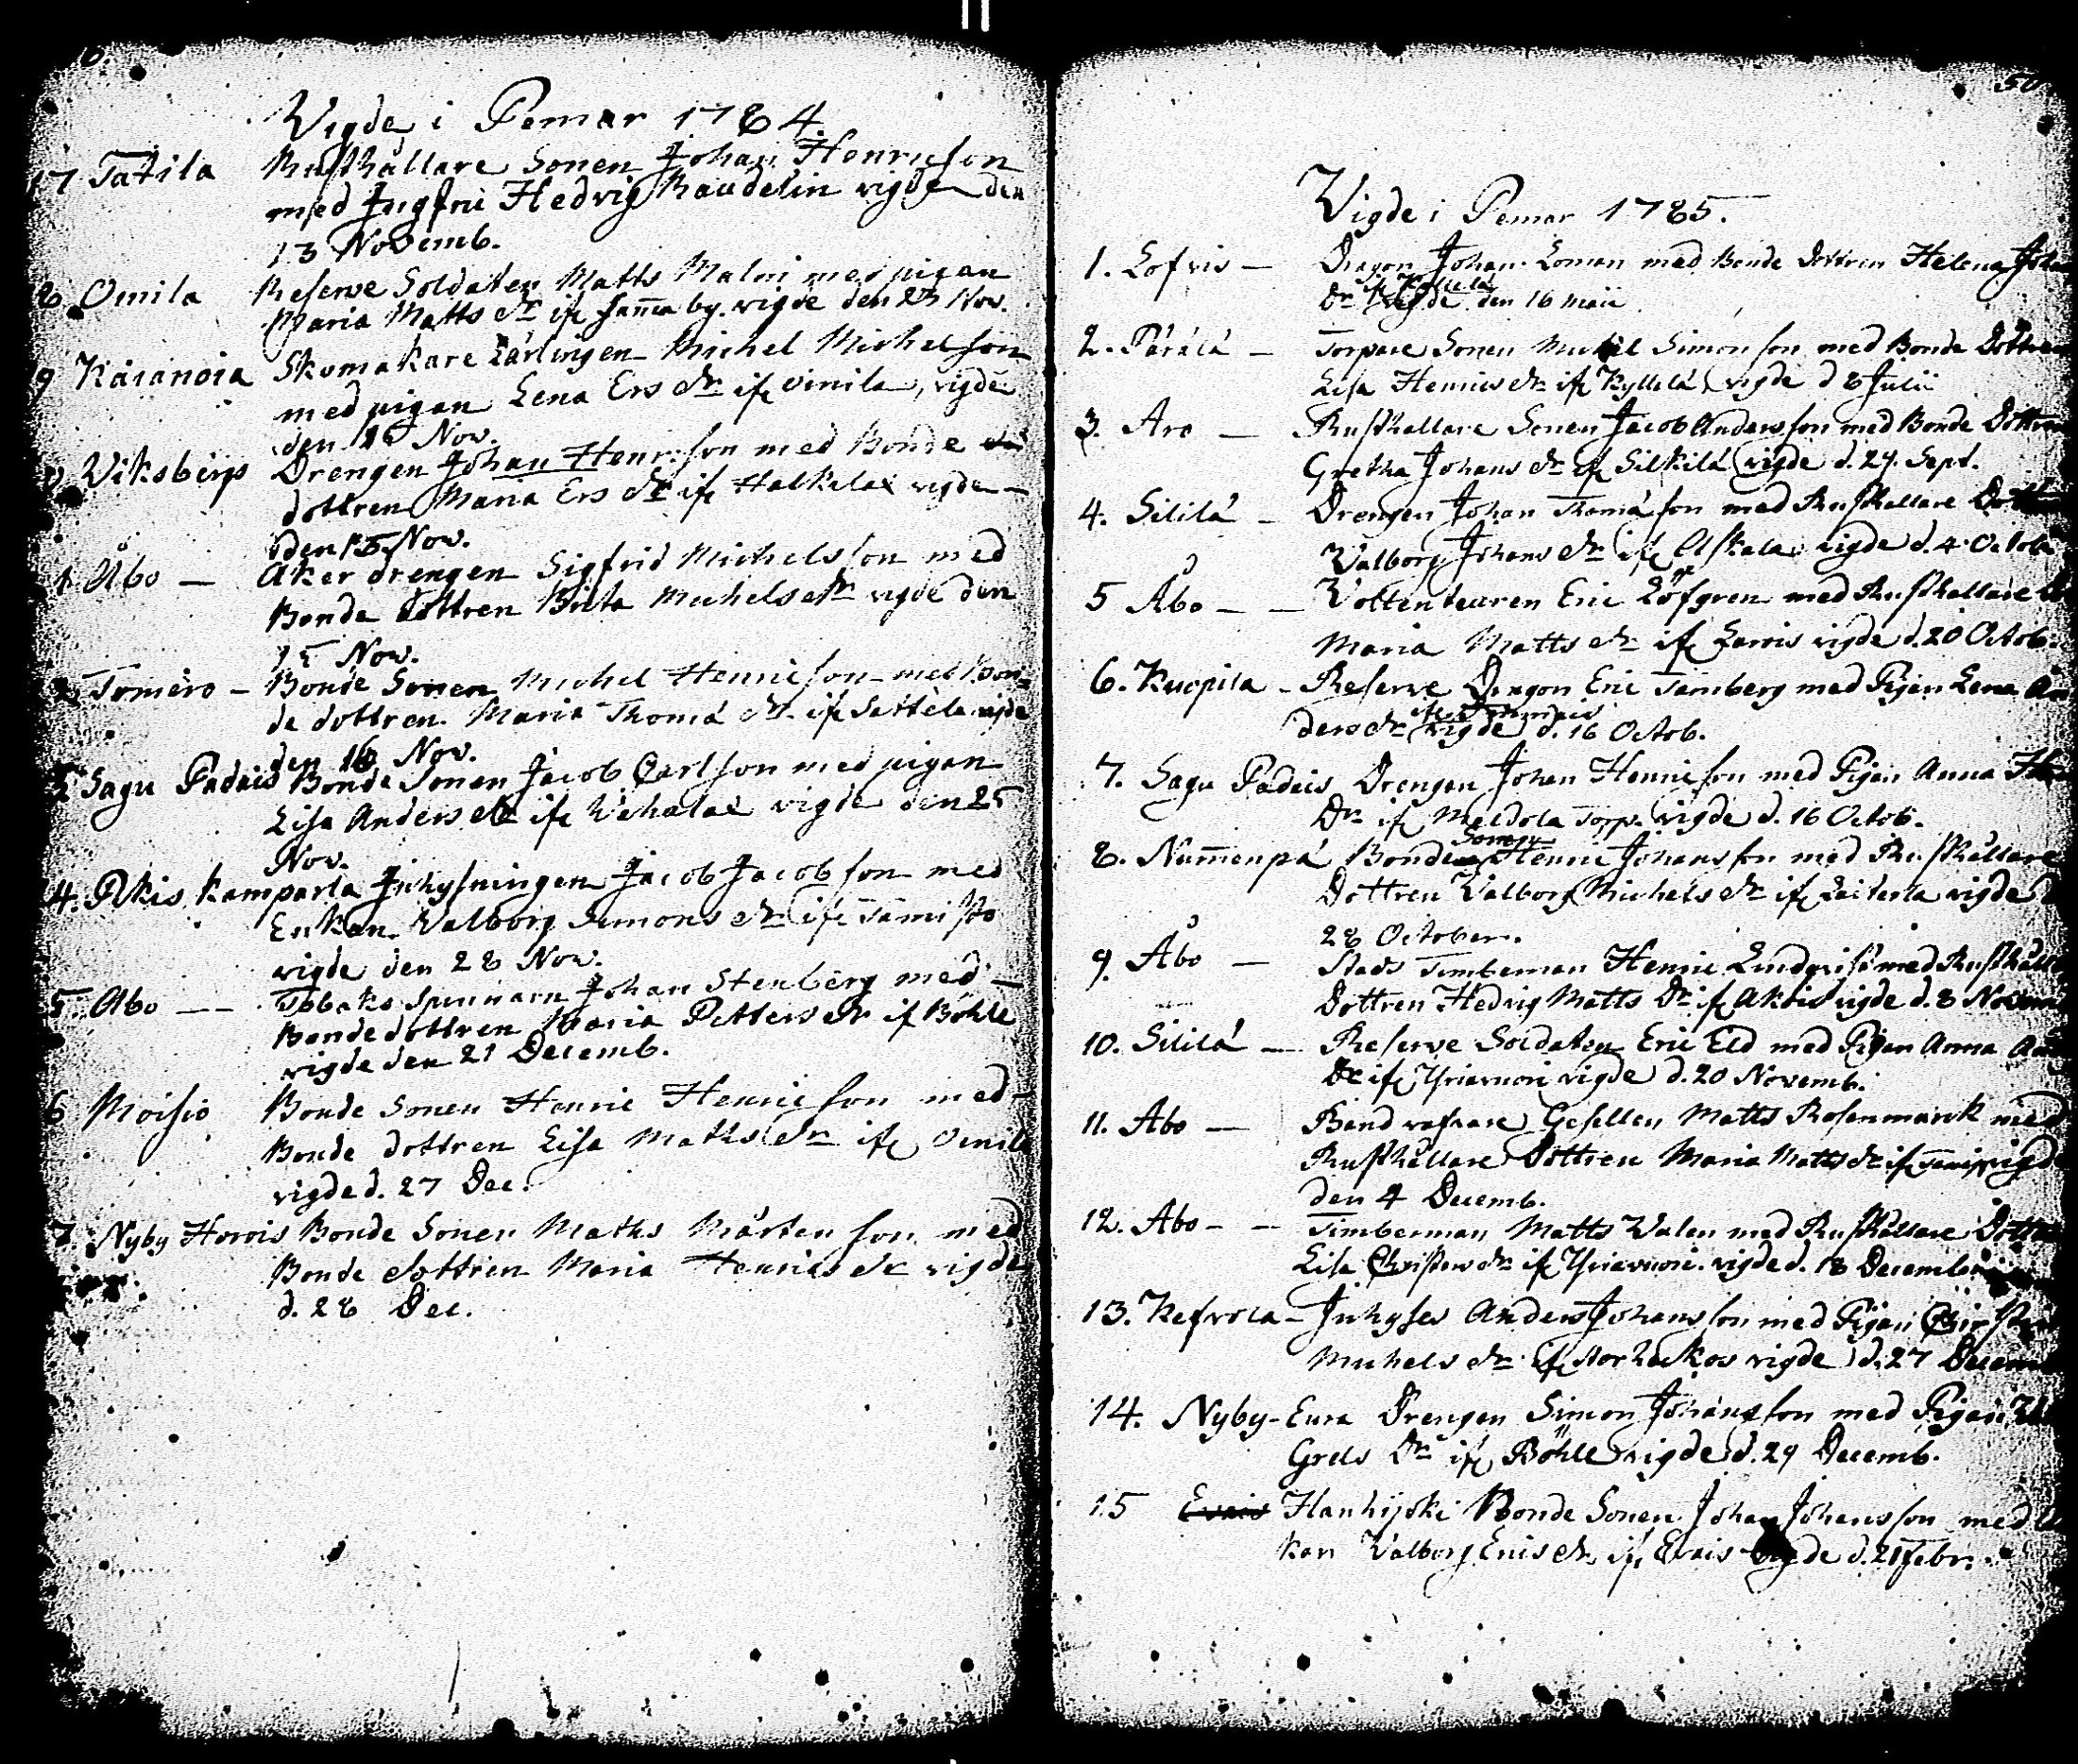 Vigde i Pemar 1784.
17 Tatila Rusthållare Sonen Johan Henricson
med Jugfru Hedvig Raudelin vigde den
13 Novemb.
8 Oinila Reserve Soldaten Matts Malm med pigan
Maria Matts dr ifr samma by. vigde den 23 Nov.
9 Karanoja Skomakare Lärlingen Michel Michelson
med pigan Lena Ers dr ifr Oinila, vigde
den 15 Nov.
Viksbergs Drengen Johan Henricson med Bonde
dottren Maria Ers dr ifr Halkilax vigde
den 15 Nov.
1. Åbo — Åkerdrengen Sigfrid Michelsson med
Bonde dottren Brita Michels dr vigde den
15 Nov.
2 Tömero — Bonde Sonen Michel Henricson med Bon-
de dottren Maria Thomæ dr ifr Settelä vigde
den 16 Nov.
Sagu Padais Bonde Sonen Jacob Carlson med pigan
Lisa Anders dr ifr vigde den 25
Nov.
4. Pikis Kamparla Inhysningen Jacob Jacobson med
Enkan Valborg Simons dr ifr Tamisto
vigde den 28 Nov.
5. Åbo — — Tobaks Spinnarn Johan Stenberg med
Bonde dottren Maria Petters dr if Böhle
vigde den 21 Decemb.
6 Moisio Bonde Sonen Henric Henricson med
Bonde dottren Lisa Matts dr ifr Oinila
vigde d. 27 Dec.
7. Nyby Horois Bonde Sonen Matts Mårtenson med
Bonde dottren Maria Henrics dr vigde
d. 28 Dec.
Vigde i Pemar 1785.
1. Lofvis — Dragon Johan Loman med Bonde dottren Helena Joha
Dr vigde den 16 Maii
2. Pärälä — Torpare Sonen Michel Simonson med Bonde Dottren
Lisa Henrics dr ifr Kyllelä vigde d 8 Julii
3. Aro — Rusthållare Sonen Jacob Andersson med Bonde Dottren
Gretha Johans dr if Silkilä vigde d. 29. Sept.
4. Sililä — Drengen Johan Thomæson med Rusthållare Dottren
Valborg Johans dr ifr Askala vigde d. 4. Octob
5 Åbo — — Volteneuren Eric Löfgren med Rusthållare
Maria Matts dr ifr Larvis vigde d. 20 Octob.
6. Kuopila — Reserve Dragon Eric Tamberg med Pigan Lena An
ders dr vigde d. 16 Octob.
7. Sagu Padais Drengen Johan Henricson med Pigan Anna
Dr if Meldola Torp. vigde d. 16 Octob.
Sonen
8. Nummenpä Bonde Henric Johansson med Rusthållare
Dottren Valborg Michels dr ifr vigde
28 October.
9. Åbo — Stads Timberman Henric Lindqvist med Rusthåll
Dottren Hedvig Matts Dr if Akois vigde d. 8 Novem
10. Sililä — Reserve Soldaten Eric Eld med Pigan Anna
Dr if Yriævuori vigde d. 20 Novemb.
11. Åbo — Band väfvare Gesellen Matts Rosenmarck med
Rusthållare Dottren Maria Matts dr if vigd
den 4 Decemb.
12. Åbo — — Timberman Matts Valen med Rusthållare Dottren
Lisa Christers dr if Yriævuori vigde d. 18 Decemb.
13. Kefvola — Inhyses Anders Johansson med Pigan Christin
Michels dr if Storheikos vigde d. 27 Decem
14. Nyby-Eura Drengen Simon Johansson med Pigan
Grels Dr ifr Böhle vigde d. 29 Decemb.
15 Evais Hanhijoki Bonde Sonen Johan Johansson med
kan Valborg Erics dr ifr Evais vigde d. 21 Febr.